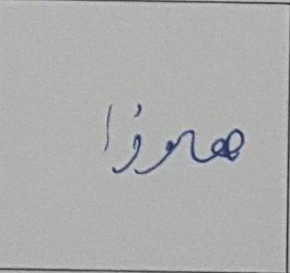 هموزا